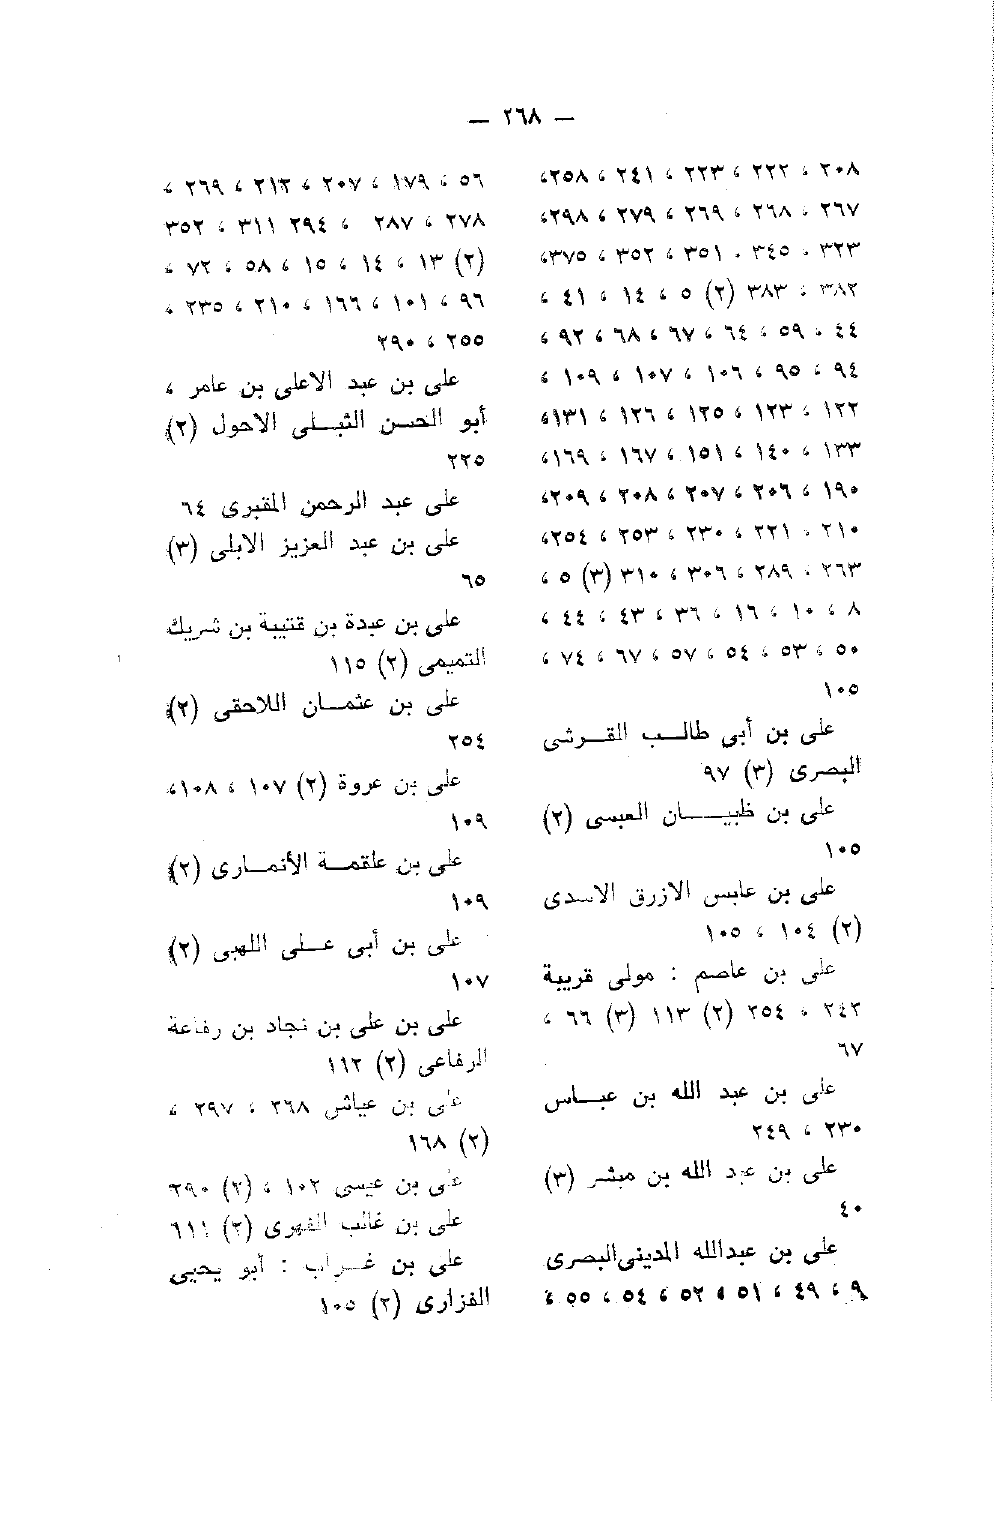 — ٢٦٨ —
٢٠٨ ، ٢٢٢ ، ٢٢٣ ، ٢٤١ ، ٢٥٨،
٢٦٧ ، ٢٦٨ ، ٢٦٩ ، ٢٧٩ ، ٢٩٨،
٣٢٣ ، ٣٤٥ ، ٣٥١ ، ٣٥٢ ، ٣٧٥،
٣٨٢ ، ٣٨٣ (٢) ٥ ، ١٤ ، ٤١ ،
٤٤ ، ٥٩ ، ٦٤ ، ٦٧ ، ٦٨ ، ٩٢ ،
٩٤ ، ٩٥ ، ١٠٦ ، ١٠٧ ، ١٠٩ ،
١٢٢ ، ١٢٣ ، ١٢٥ ، ١٢٦ ، ١٣١،
١٣٣ ، ١٤٠ ، ١٥١ ، ١٦٧ ، ١٦٩،
١٩٠ ، ٢٠٦ ، ٢٠٧ ، ٢٠٨ ، ٢٠٩،
٢١٠ ، ٢٢١ ، ٢٣٠ ، ٢٥٣ ، ٢٥٤،
٢٦٣ ، ٢٨٩ ، ٣٠٦ ، ٣١٠ (٣) ٥ ،
٨ ، ١٠ ، ١٦ ، ٣٦ ، ٤٣ ، ٤٤ ،
٥٠ ، ٥٣ ، ٥٤ ، ٥٧ ، ٦٧ ، ٧٤ ،
١٠٥
على بن أبي طالب القرشى
البصرى (٣) ٩٧
على بن ظبيان العبسى (٢)
١٠٥
على بن عابس الازرق الاسدى
(٢) ١٠٤ ، ١٠٥
على بن عاصم : مولى قريبة
٢٤٢ ، ٢٥٤ (٢) ١١٣ (٣) ٦٦ ،
٦٧
على بن عبد الله بن عباس
٢٣٠ ، ٢٤٩
على بن عبد الله بن مبشر (٣)
٤٠
على بن عبدالله المديني البصرى
٩ ، ٤٩ ، ٥١ ، ٥٢ ، ٥٤ ، ٥٥ ،
٥٦ ، ١٧٩ ، ٢٠٧ ، ٢١٢ ، ٢٦٩ ،
٢٧٨ ، ٢٨٧ ، ٢٩٤ ٣١١ ، ٣٥٢
(٢) ١٣ ، ١٤ ، ١٥ ، ٥٨ ، ٧٢ ،
٩٦ ، ١٠١ ، ١٦٦ ، ٢١٠ ، ٢٣٥ ،
٢٥٥ ، ٢٩٠
على بن عبد الاعلى بن عامر ،
أبو الحسن الثبلى الاحول (٢)
٢٢٥
على عبد الرحمن المقبرى ٦٤
على بن عبد العزيز الابلى (٣)
٦٥
على بن عبدة بن قتيبة بن شريك
التميمى (٢) ١١٥
على بن عثمان اللاحقى (٢)
٢٥٤
على بن عروة (٢) ١٠٧ ، ١٠٨،
١٠٩
على بن علقمة الأنمارى (٢)
١٠٩
على بن أبى على اللهبى (٢)
١٠٧
على بن على بن نجاد بن رفاعة
الرفاعى (٢) ١١٢
على بن عياش ٢٦٨ ، ٢٩٧ ،
(٢) ١٦٨
على بن عيسى ١٠٢ ، (٢) ٢٩٠
على بن غالب الفهرى (٢) ١١١
على بن غراب : أبو يحيى
الفزارى (٢) ١٠٥